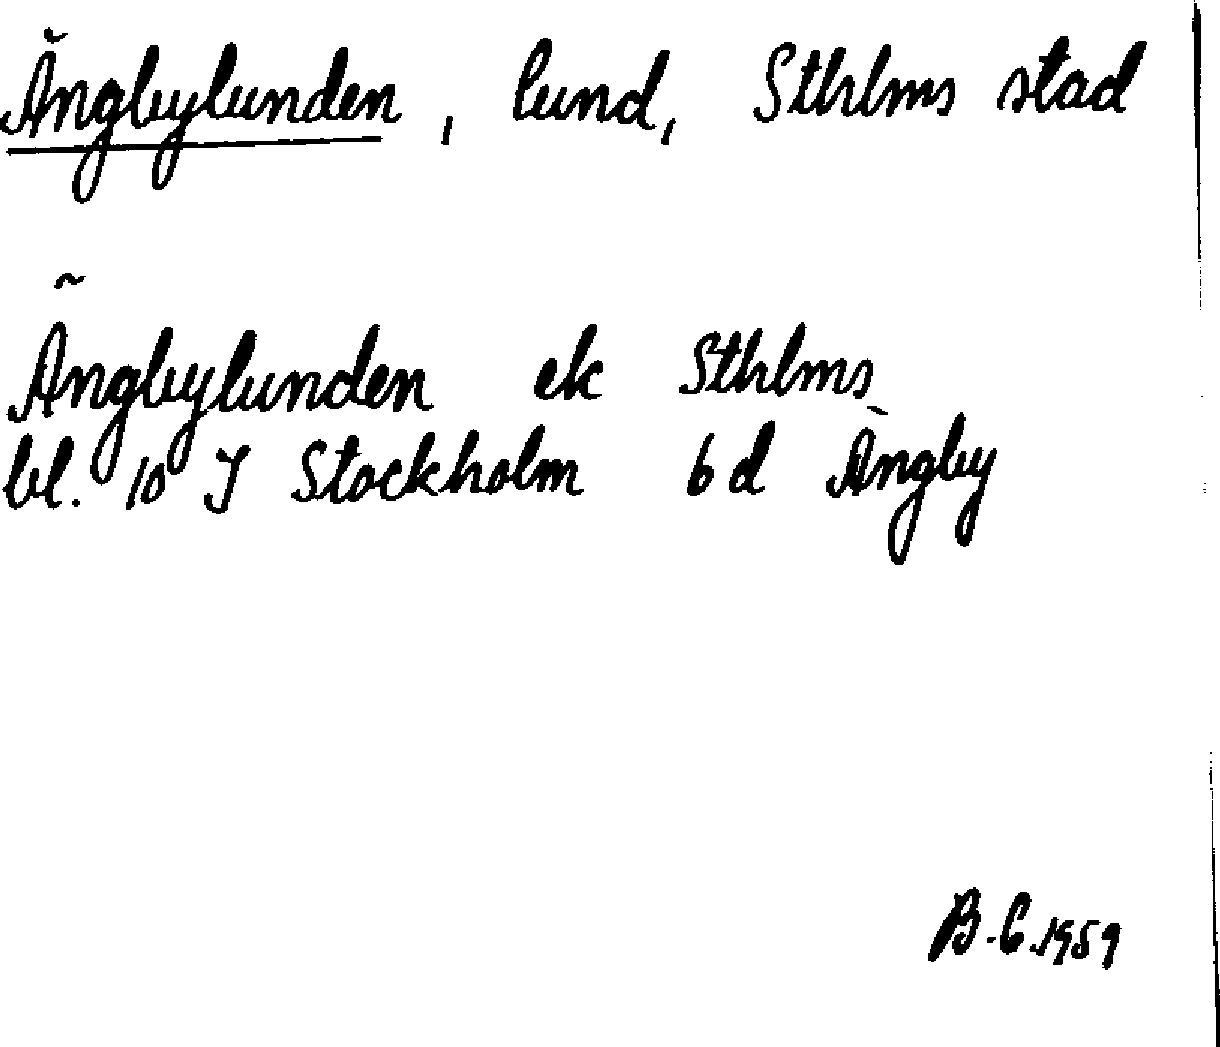 Ängbylunden, lund, Sthlms stad
Ängbylunden ek Sthlms
bl. 10 I Stockholm 6 d Ängby
B.G.1959